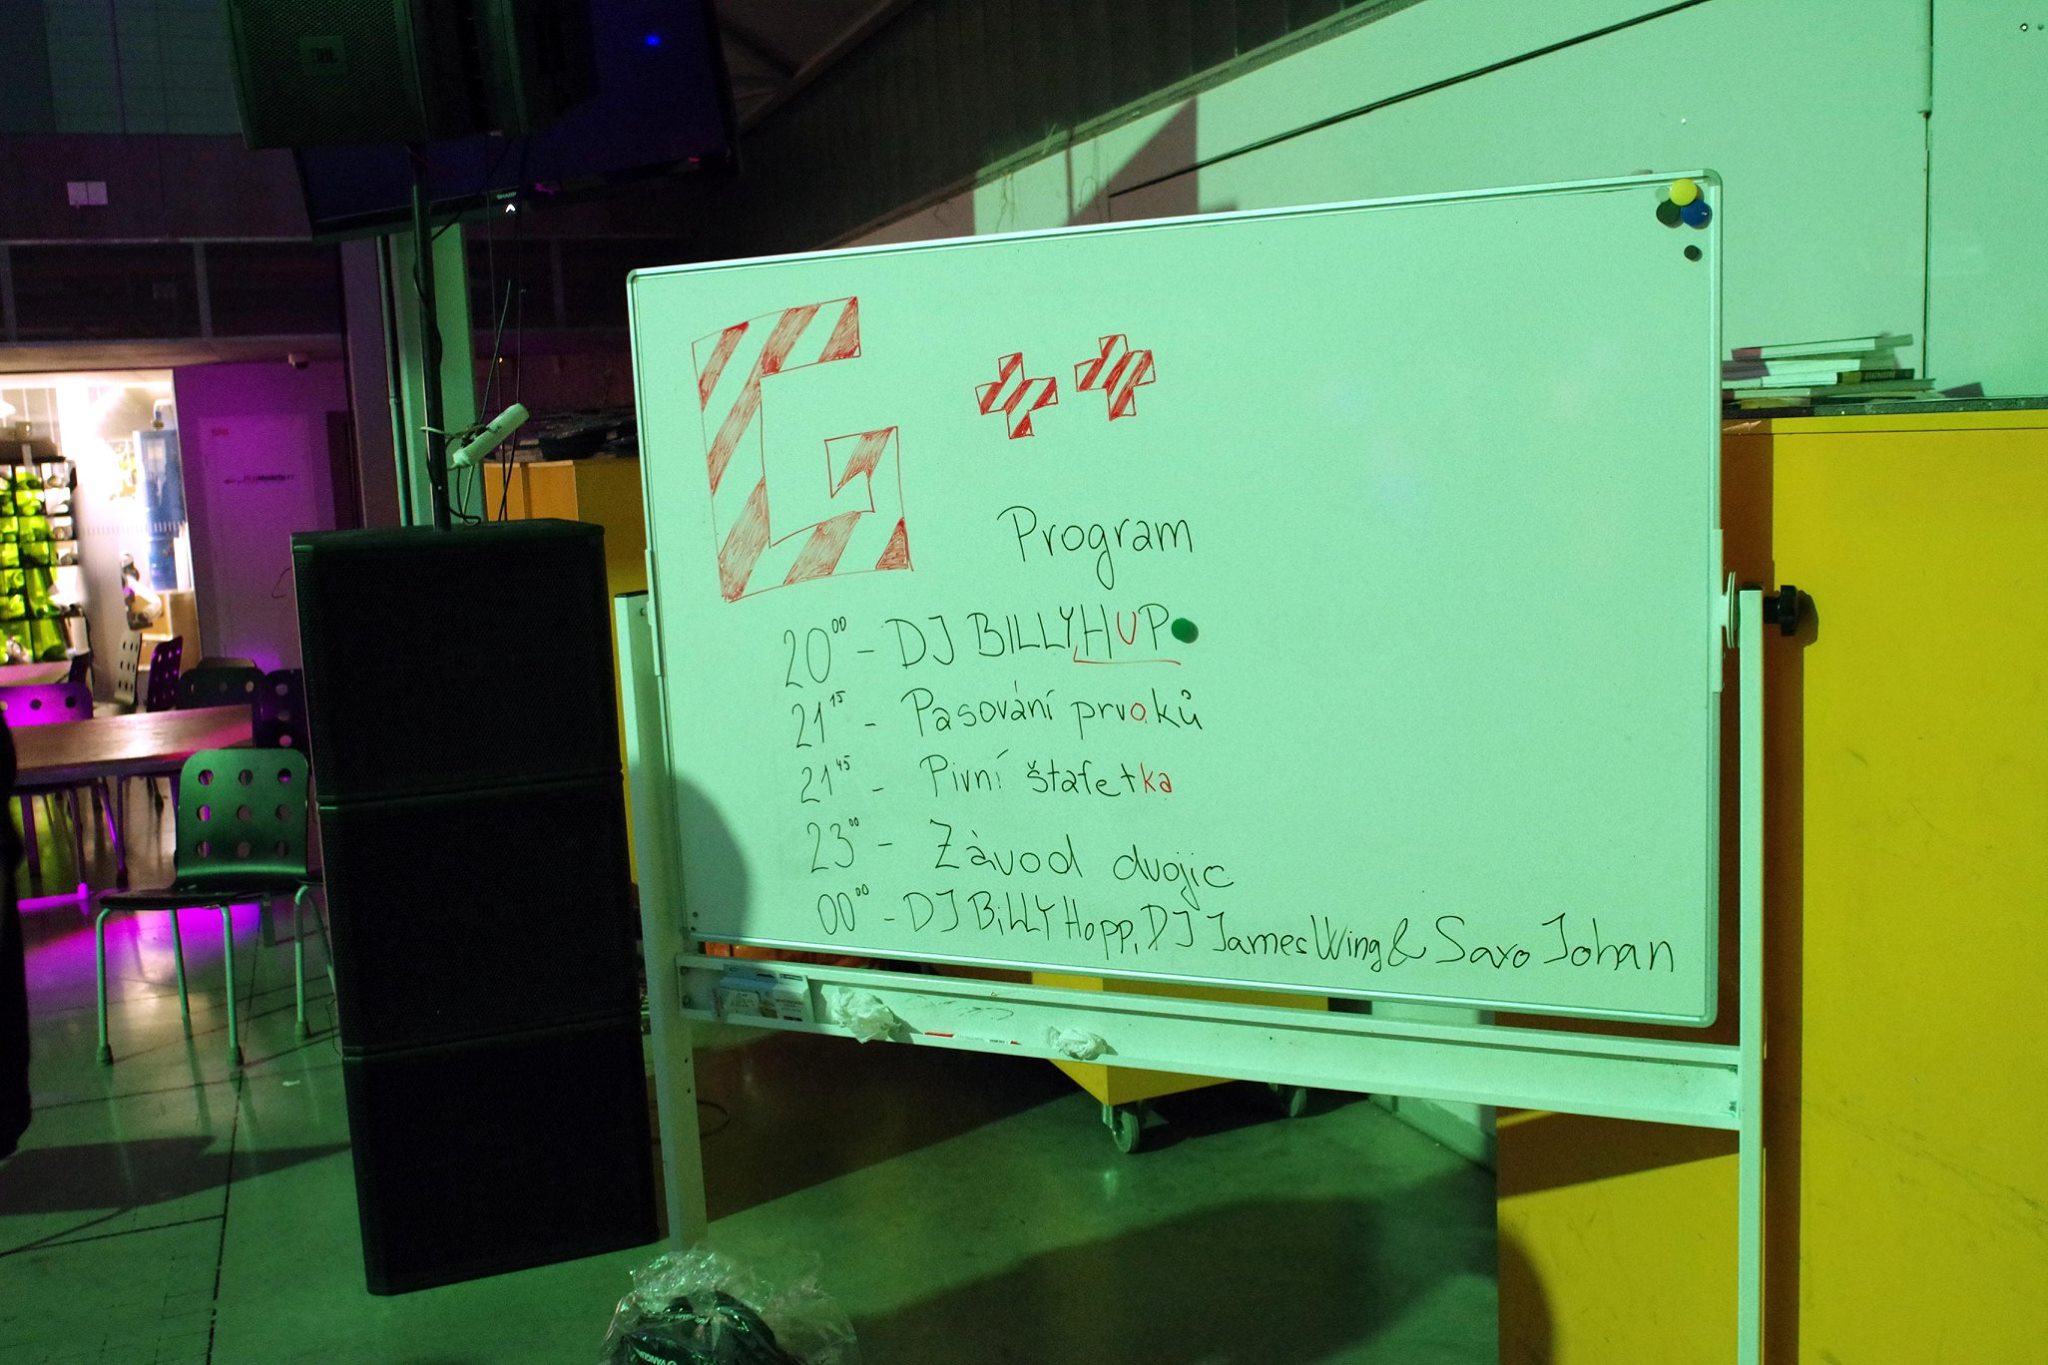 G++
Program
20⁰⁰ - DJ BILLYHUP
21¹⁵ - Pasování prvoků
21⁴⁵ - Pivní štafetka
23⁰⁰ - Závod dvojic
00⁰⁰ - DJ BiLLY Hopp, DJ James Wing & Saxo Johan
JBL
SHARP